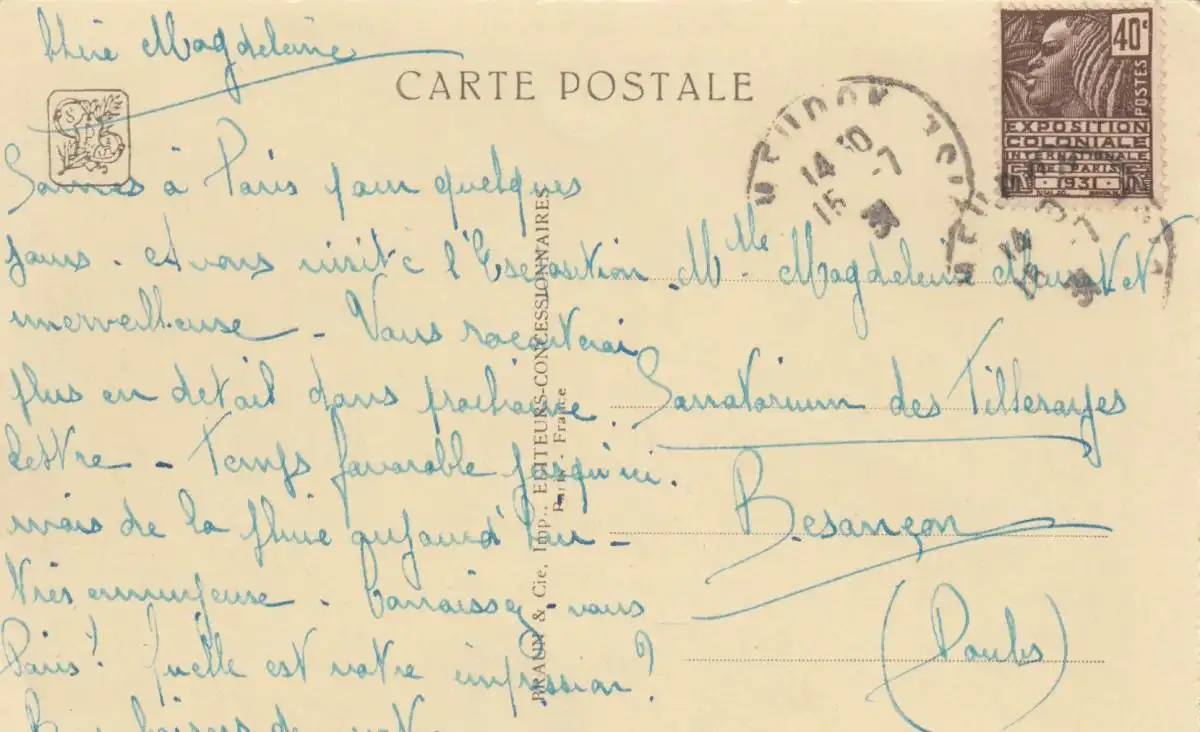 Chère Magdeleine
CARTE POSTALE
S P
40c
POSTES
EXPOSITION
COLONIALE
INTERNATIONALE
DE PARIS
1931
MEUDON
14 30
15 -7
31
Sommes à Paris pour quelques
jours. Avons visité l'Exposition
merveilleuse - Vous raconterai
plus en détail dans prochaine
lettre - Temps favorable jusqu'ici.
mais de la pluie aujourd'hui -
très ennuyeuse. Connaissez-vous
Paris? Quelle est votre impression?
Bons baisers de votre
BRAUN & Cie, Imp., EDITEURS-CONCESSIONNAIRES
Paris - France
Mlle Magdeleine
Sanatorium des Tilleroyes
Besançon
(Doubs)